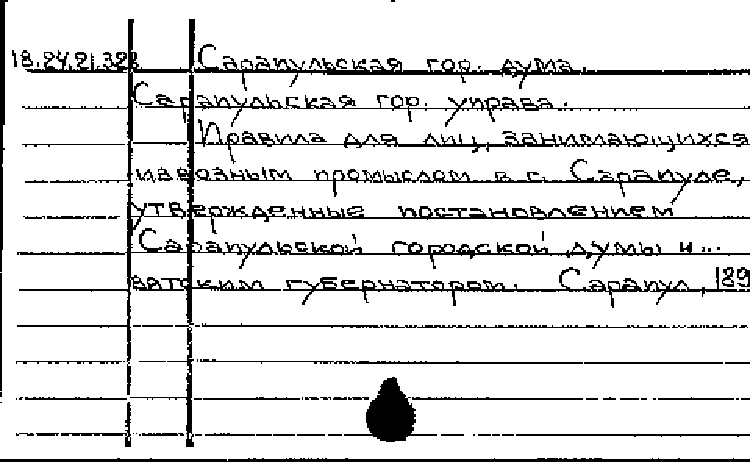 18.24.21.328 Сарапульская гор. дума.
Сарапульская гор. управа.
Правила для лиц, занимающихся
извозным промыслом в г. Сарапуле,
утвержденные постановлением
Сарапульской городской думы и...
вятским губернатором. Сарапул, 189